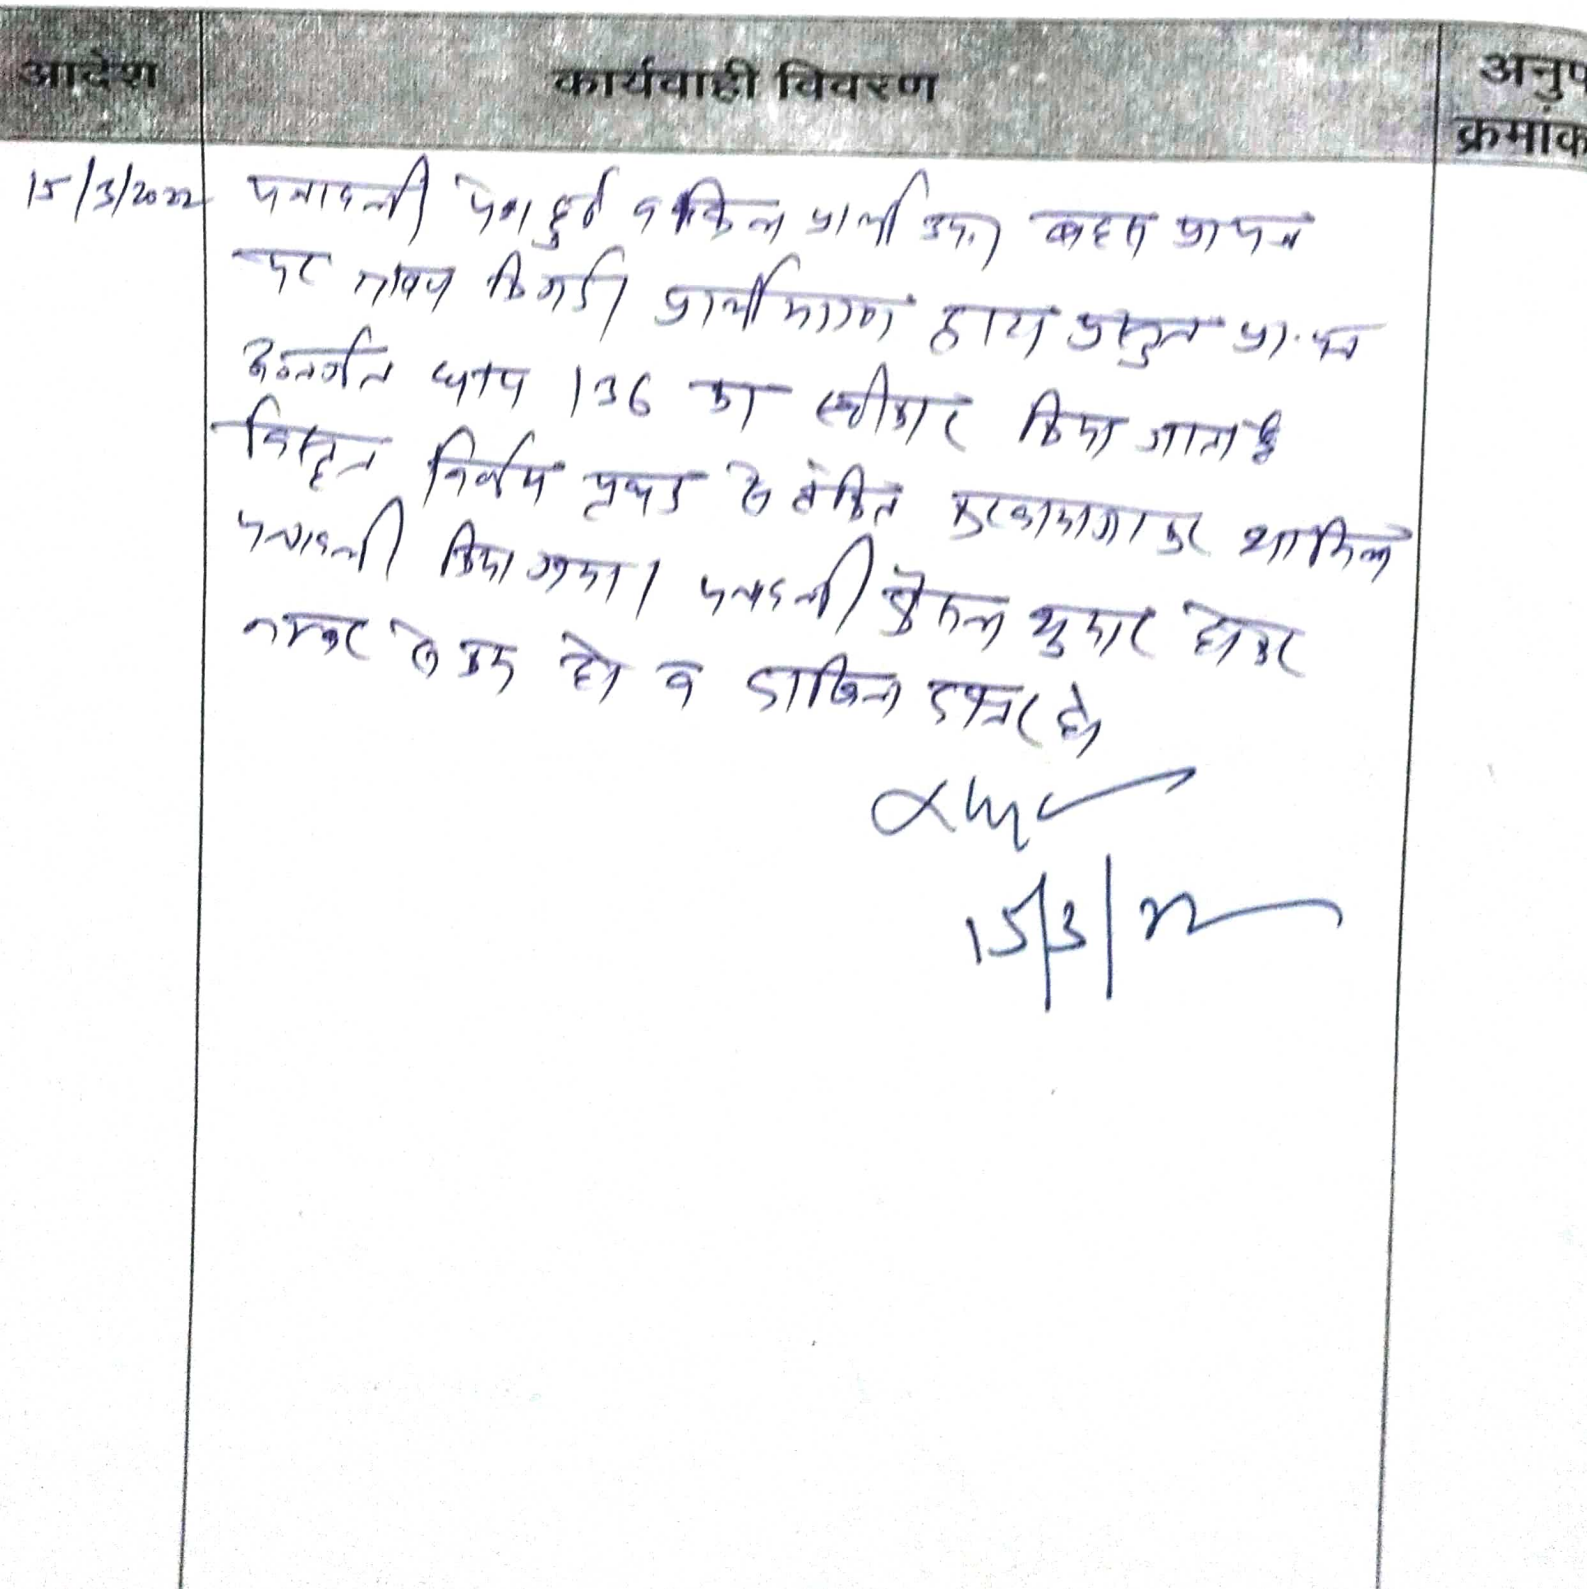 आदेश कार्यवाही विवरण अनुप
क्रमांक
15/3/2022 पत्रावली पेश हुई वकिल प्रार्थी उप. बहस प्रा पत्र
पर किगई। प्रार्थीगण द्वारा प्रस्तुत प्रा. पत्र
अन्तर्गत धारा 136 का स्वीकार किया जाता है
विस्तृत निर्णय पृथक से लिखा जाकर शामिल
पत्रावली किया गया। पत्रावली फैसल शुमार होकर
नम्बर से कम हो व दाखिल दफ्तर हो
15/3/22